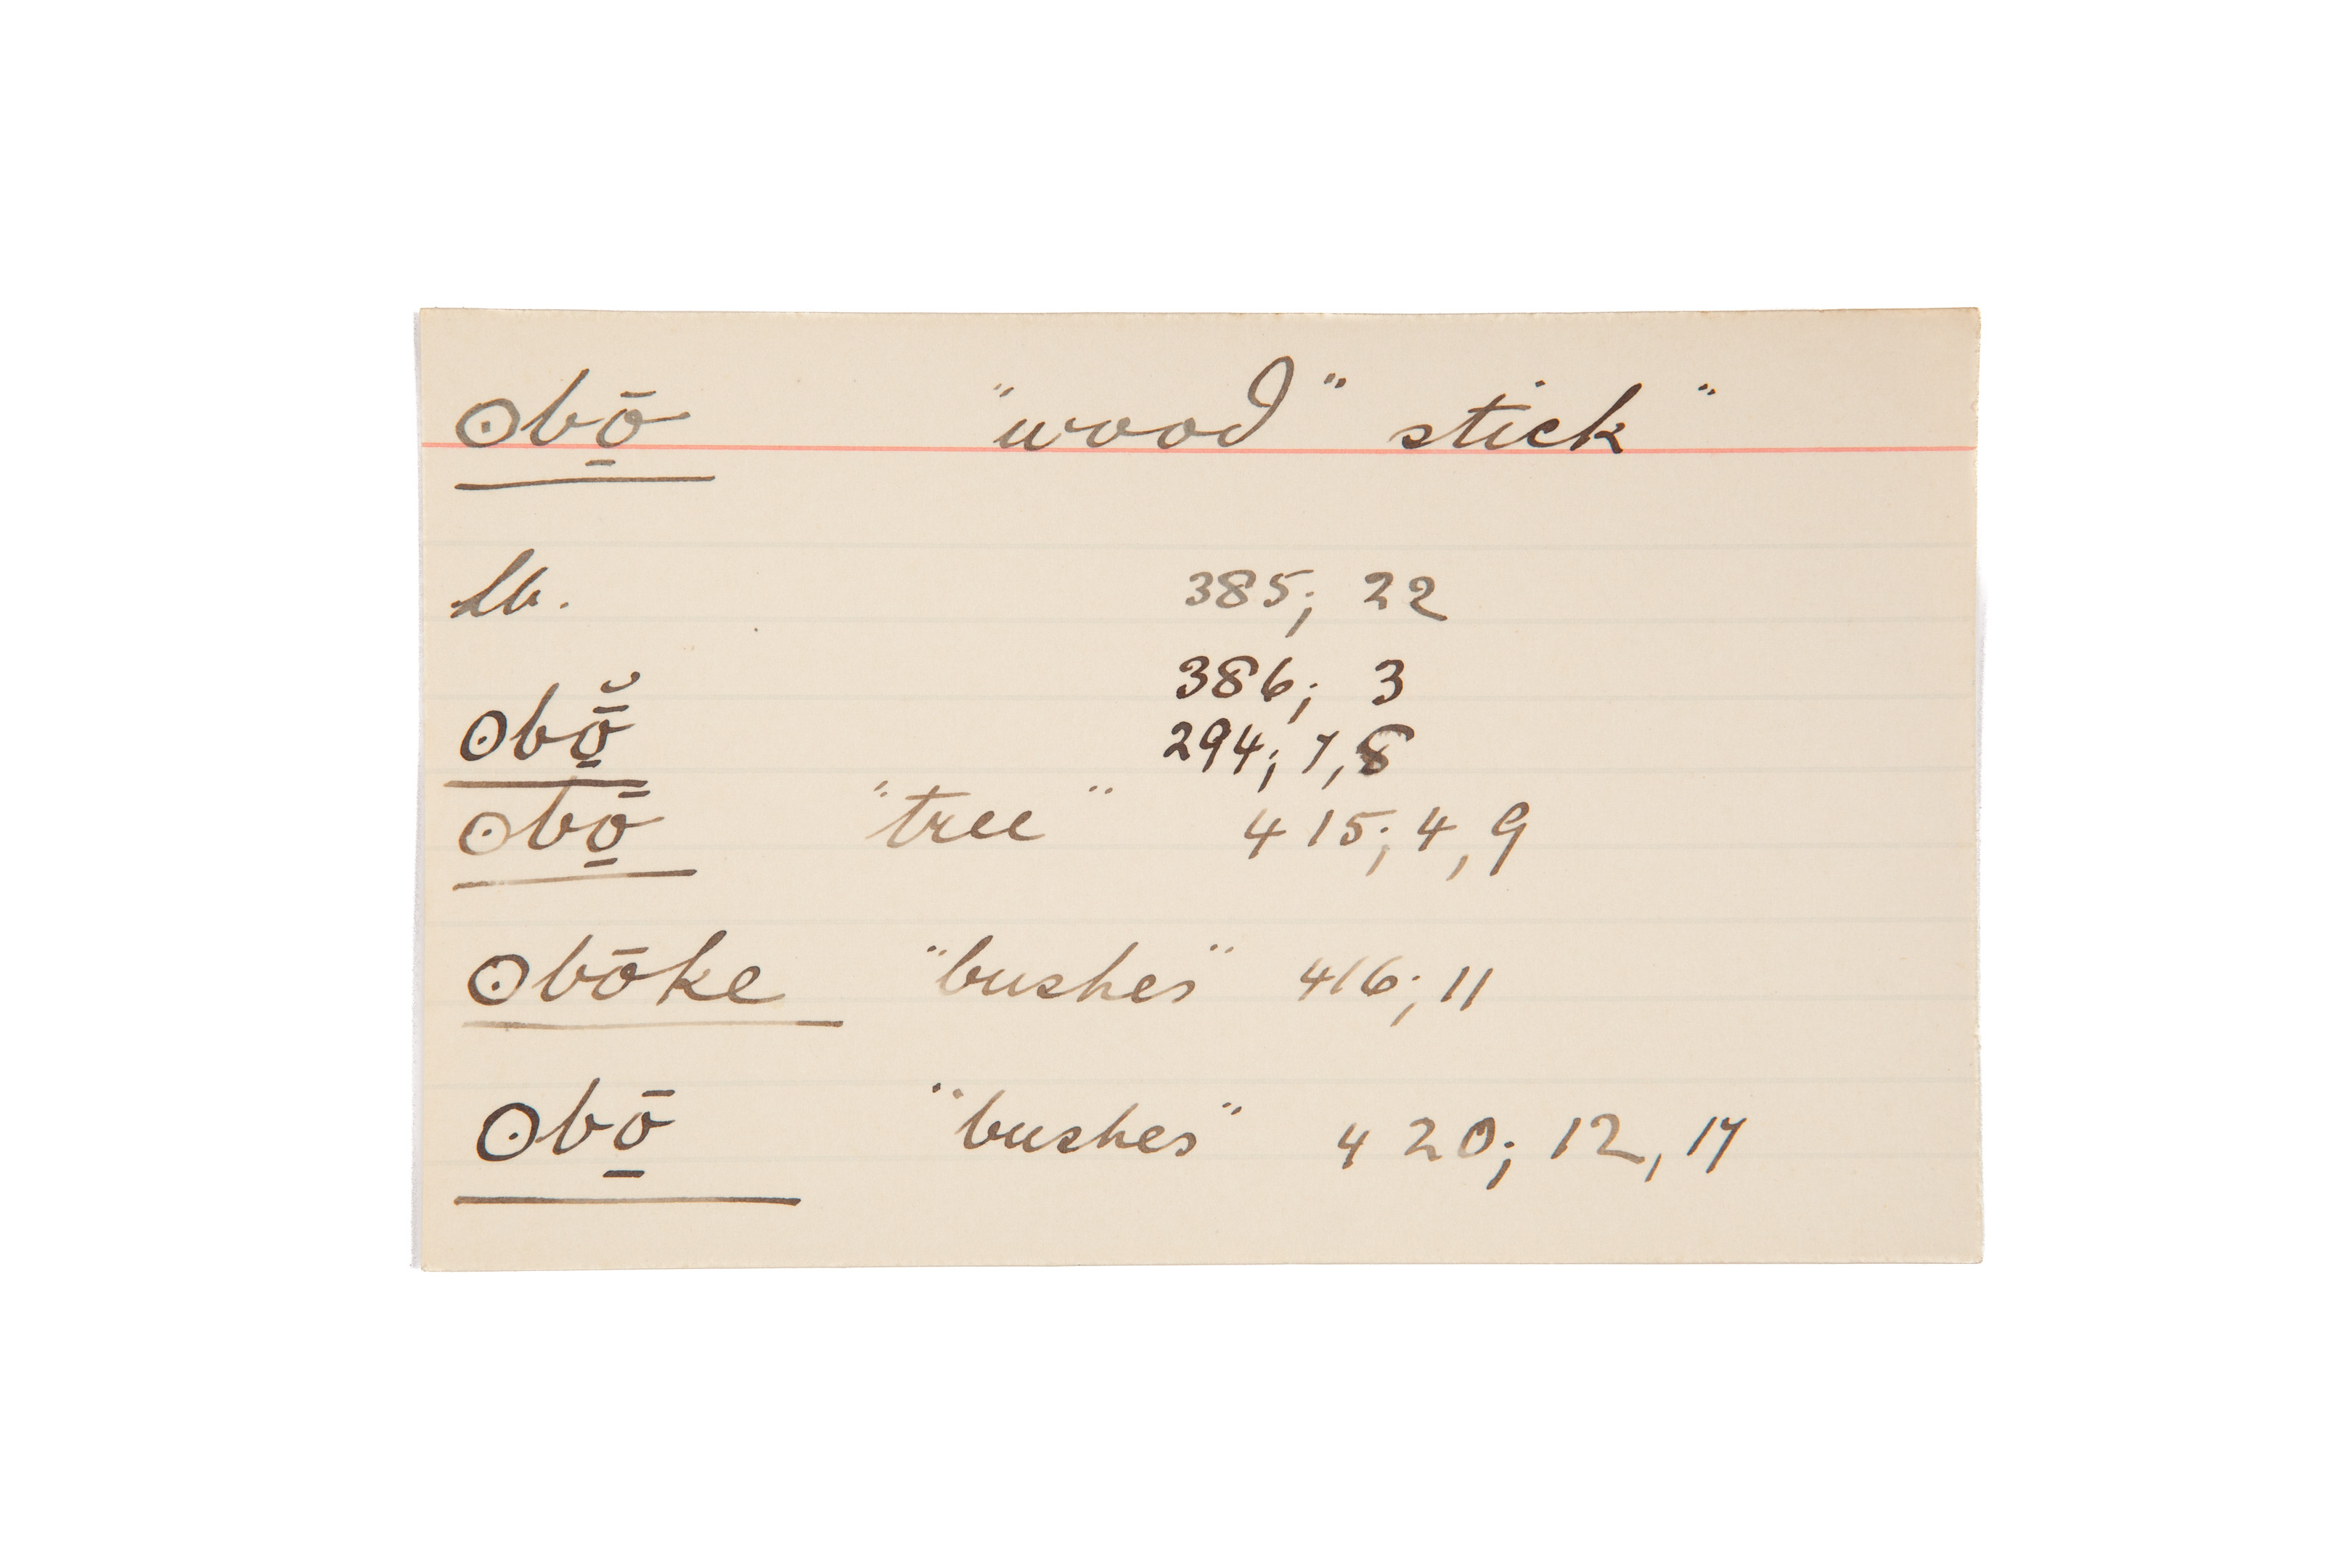 ʘbō̱ "wood" stick"
385; 22
386; 3
ʘbō̱̆ 294; 7, 8
ʘbō̱ "tree" 415; 4, 9
ʘbōke "bushes" 416; 11
ʘbō̱ "bushes" 420; 12, 17